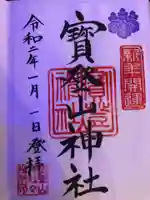 新年開運
寳登山神社
令和二年一月一日登拝